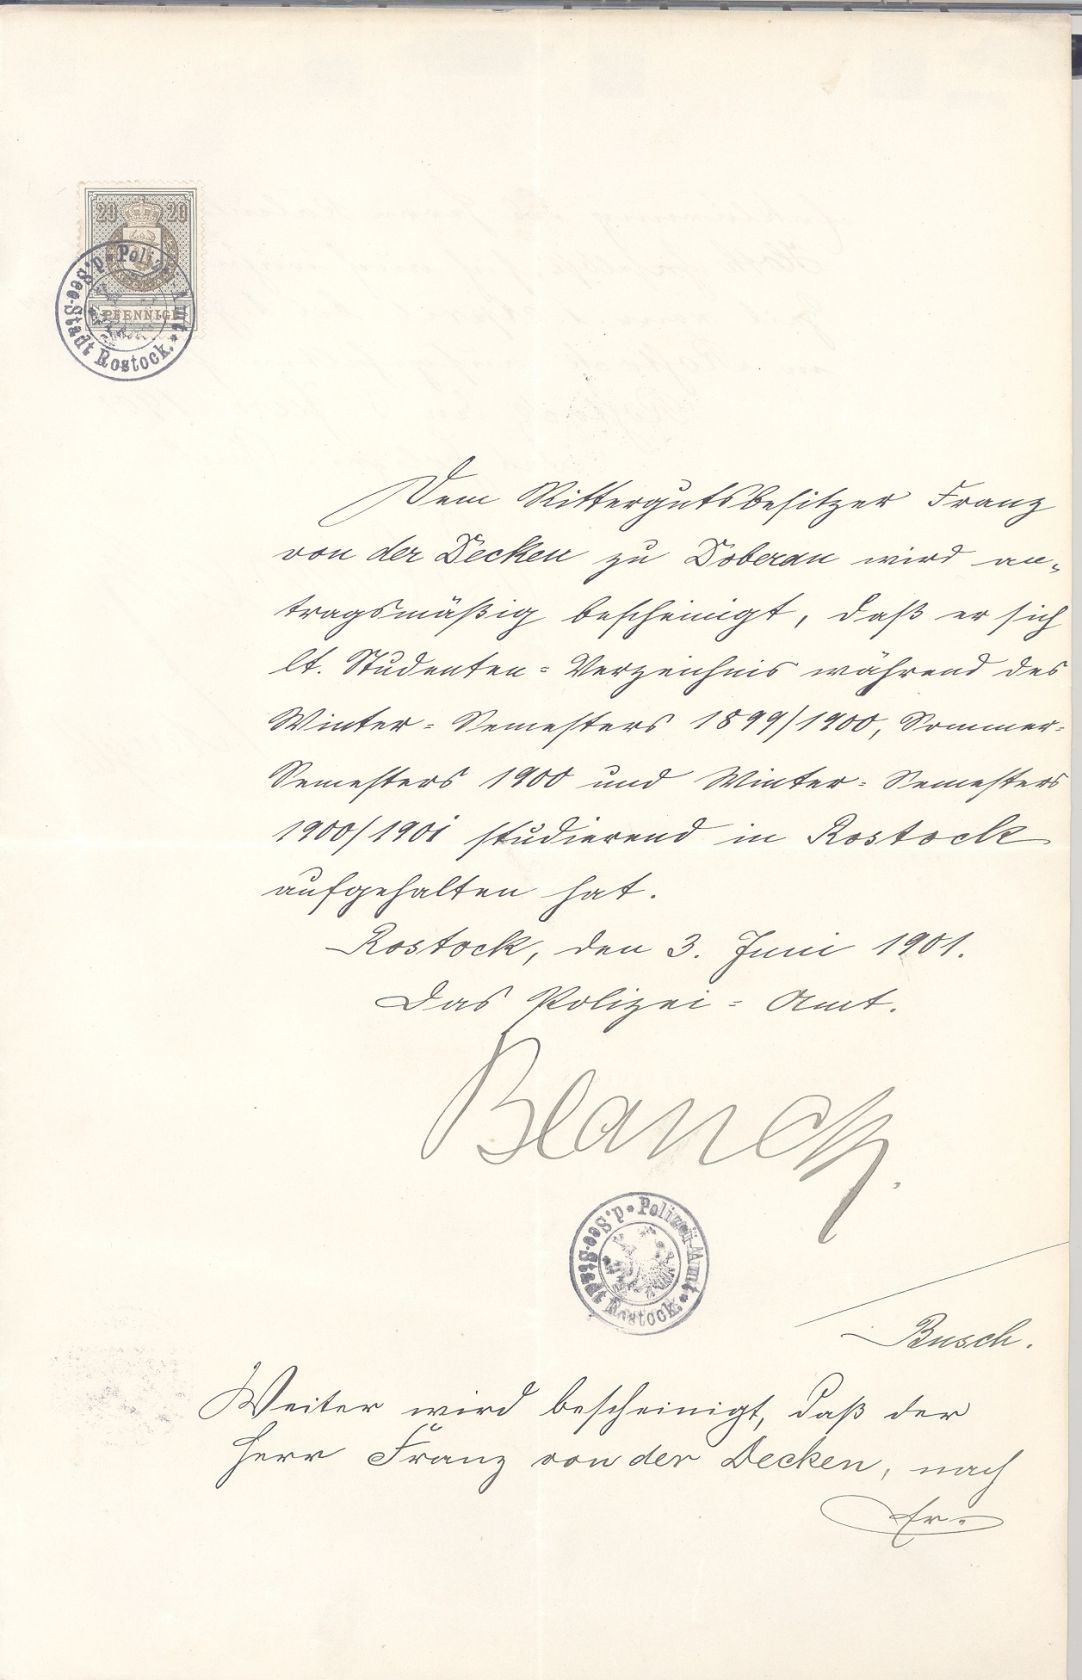 20 20
PFENNIG
Polizei-Amt d. See-Stadt Rostock.
Dem Rittergutsbesitzer Franz
von der Decken zu Doberan wird an-
tragsmäßig bescheinigt, daß er sich
lt. Studenten-Verzeichnis während des
Winter-Semesters 1899/1900, Sommer-
Semesters 1900 und Winter-Semesters
1900/1901 studierend in Rostock
aufgehalten hat.
Rostock, den 3. Juni 1901.
Das Polizei-Amt.
Blanck.
Polizei-Amt d. See-Stadt Rostock.
Busch.
Weiter wird bescheinigt, daß der
Herr Franz von der Decken, nach
Er-